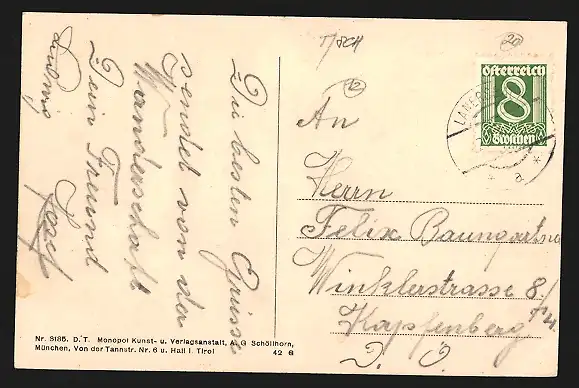 Die besten Grüsse
sendet von der
Wanderschaft
Dein Freund
Josef
Ludwig
T/SCH
20
12
österreich
8
Groschen
a
An
Herrn
Felix Baumgartner
Winklerstrasse 8/
Kapfenberg
D. Ö.
Nr. 3185. D.T. Monopol Kunst- u. Verlagsanstalt, A. G Schöllhorn,
München, Von der Tannstr. Nr. 6 u. Hall i. Tirol 42 G